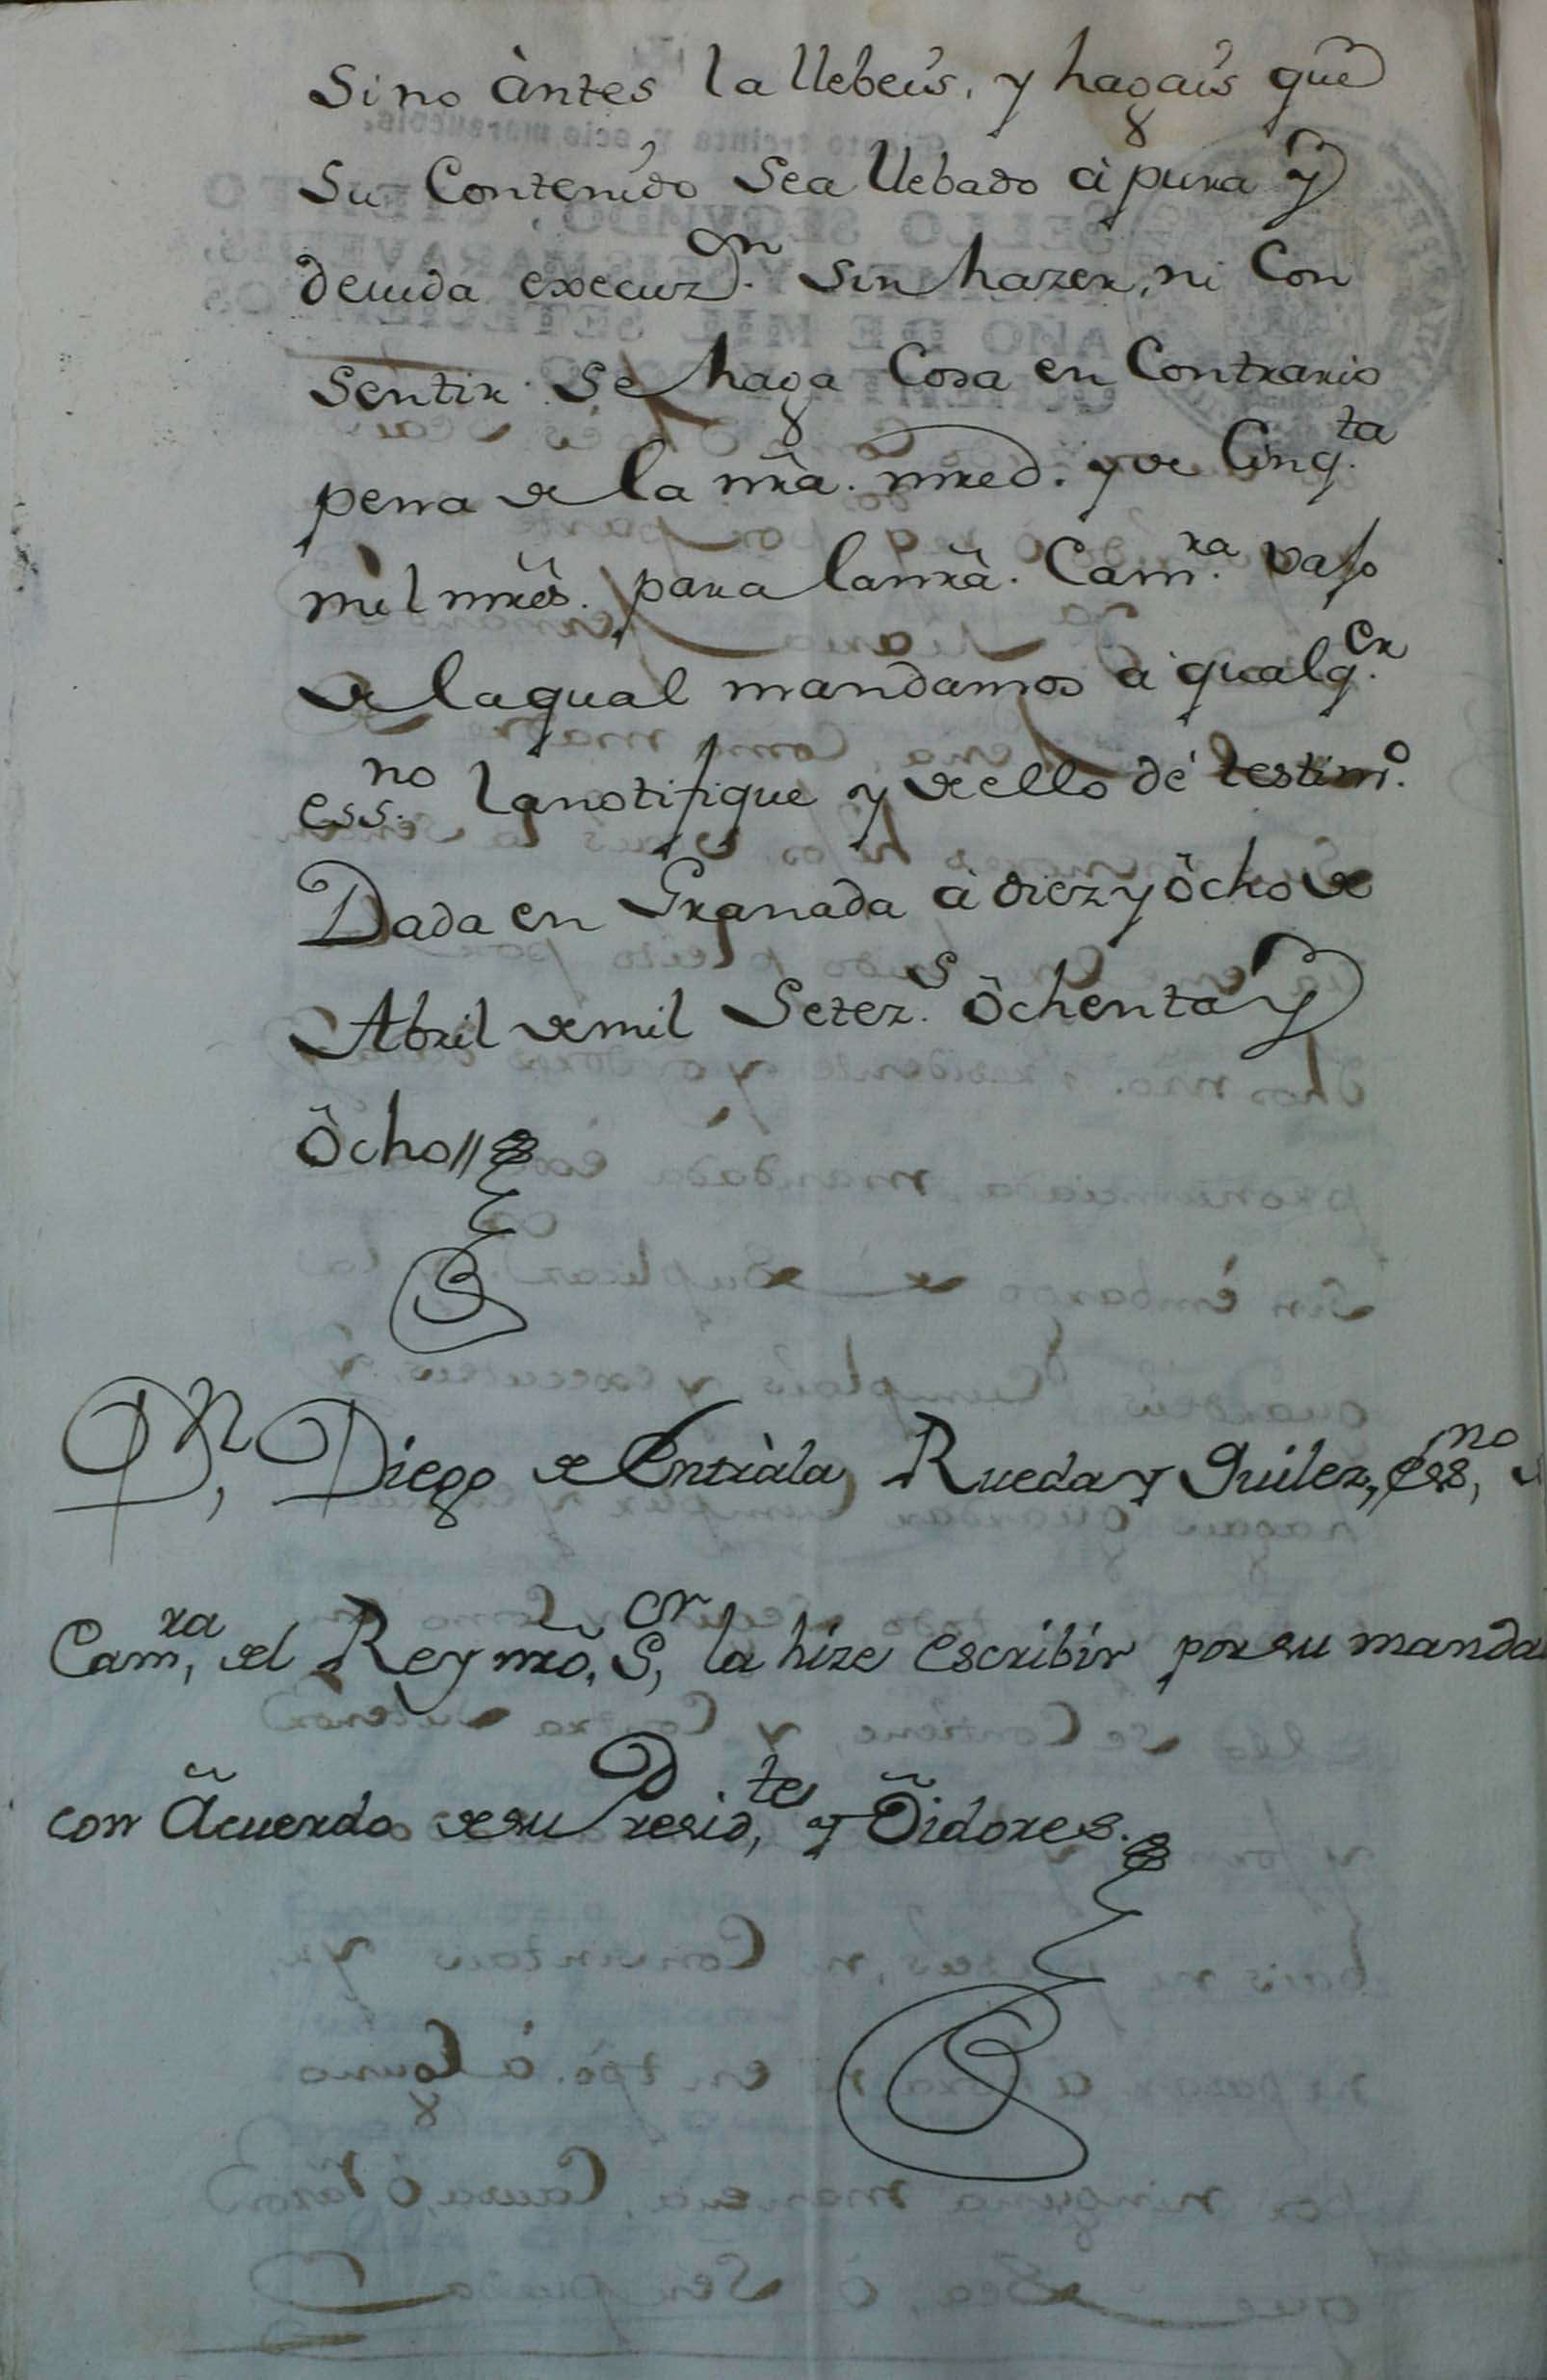 Sino àntes la llebeis, y hagais que
Su Contenido Sea llebado à pura y
deuida execuz.on Sin hazer, ni Con
sentir Se haga Cosa en Contrario
pena de la nra. mred. y de Cinq.ta
mil mrs. para la nra. Cam.ra vajo
de la qual mandamos à qualq.er
ess.no la notifique y de ello dé testim.o
Dada en Granada à diez y ôcho de
Abril de mil Setez.s ôchenta y
ôcho //
D.n Diego de Entràla, Rueda y Guilez, ess.no
Cam.ra del Rey nro. S.or la hize escribir por su manda
con acuerdo de su Presid.te y Oidores.